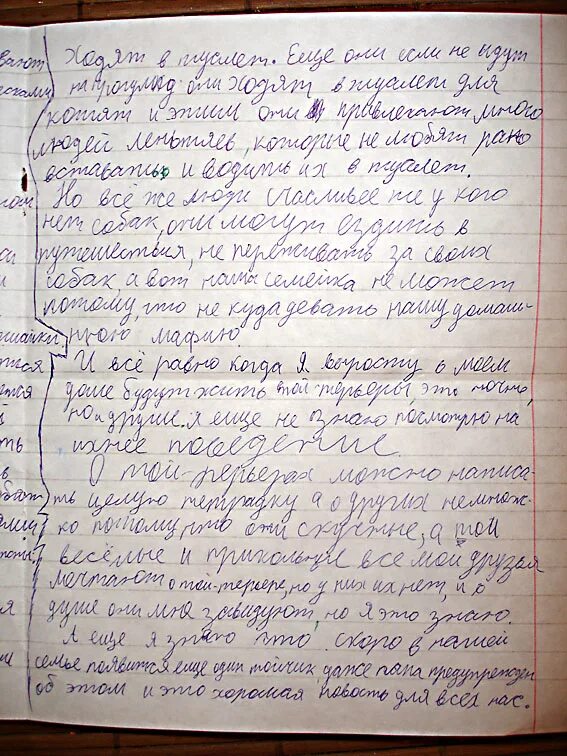 ходят в туалет. Еще они если не идут
на прогулку они ходят в туалет для
котят и этим они привлекают много
людей лентяев, которые не любят рано
вставать и водить их в туалет.
Но всё же люди счасливее те у кого
нет собак, они могут ездить в
путешествия, не переживать за своих
собак, а вот наша семейка не может
потому, что не куда девать нашу домаш-
нюю мафию.
И всё равно когда я выросту в моем
доме будут жить той-терьеры, это точно,
но и другие. я еще не знаю посмотрю на
ихнее поведение.
О той-терьерах можно написа-
ть целую тетрадку а о других немнож-
ко потому, что они скучные, а той
весёлые и прикольные все мои друзья
мечтают о той-терьере, но у них их нет, и в
душе они мне завидуют, но я это знаю.
А еще я знаю что скоро в нашей
семье появится еще один тойчик, даже папа предупрежден
об этом и это хорошая новость для всех нас.